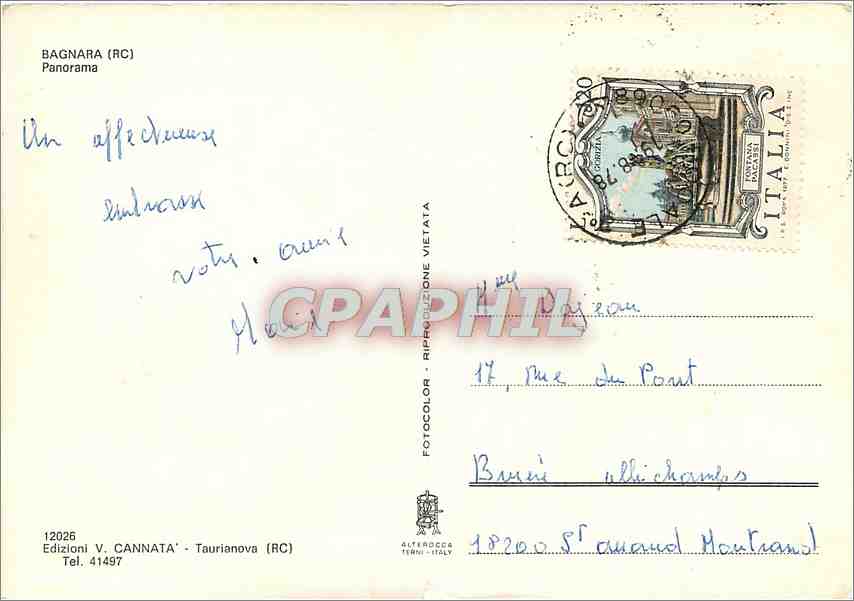 BAGNARA (RC)
Panorama
Un affectueux
votre amie
CPAPHIL
FOTOCOLOR - RIPRODUZIONE VIETATA
120
GORIZIA
FONTANA
PACASSI
ITALIA
I.P.S. ROMA 1977 E. DONNINI DIS. E INC.
29.8.78
(RC)
Mme Dojean
17, rue du Pont
Bruère allichamps
18200 St amand Montrond
12026
Edizioni V. CANNATA' - Taurianova (RC)
Tel. 41497
ALTEROCCA
TERNI - ITALY